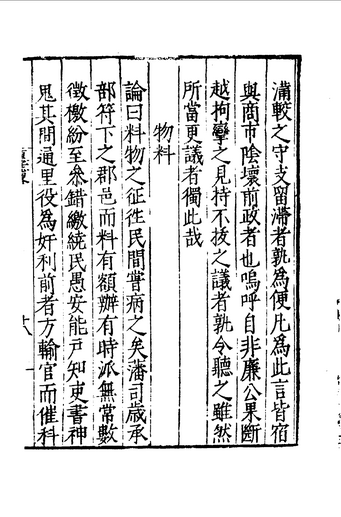 滿較之守支留滯者孰為便凡為此言皆宿
與商市陰壞前政者也嗚呼自非廉公果斷
越拘攣之見持不拔之議者孰令聽之雖然
所當更議者獨此哉
物料
論曰料物之征徃民間嘗病之矣藩司歲承
部符下之郡邑而料有額辦有時派無常數
徴檄紛至叅錯繳統民愚安能戸知吏書神
鬼其間通里役為奸利前者方輸官而催科